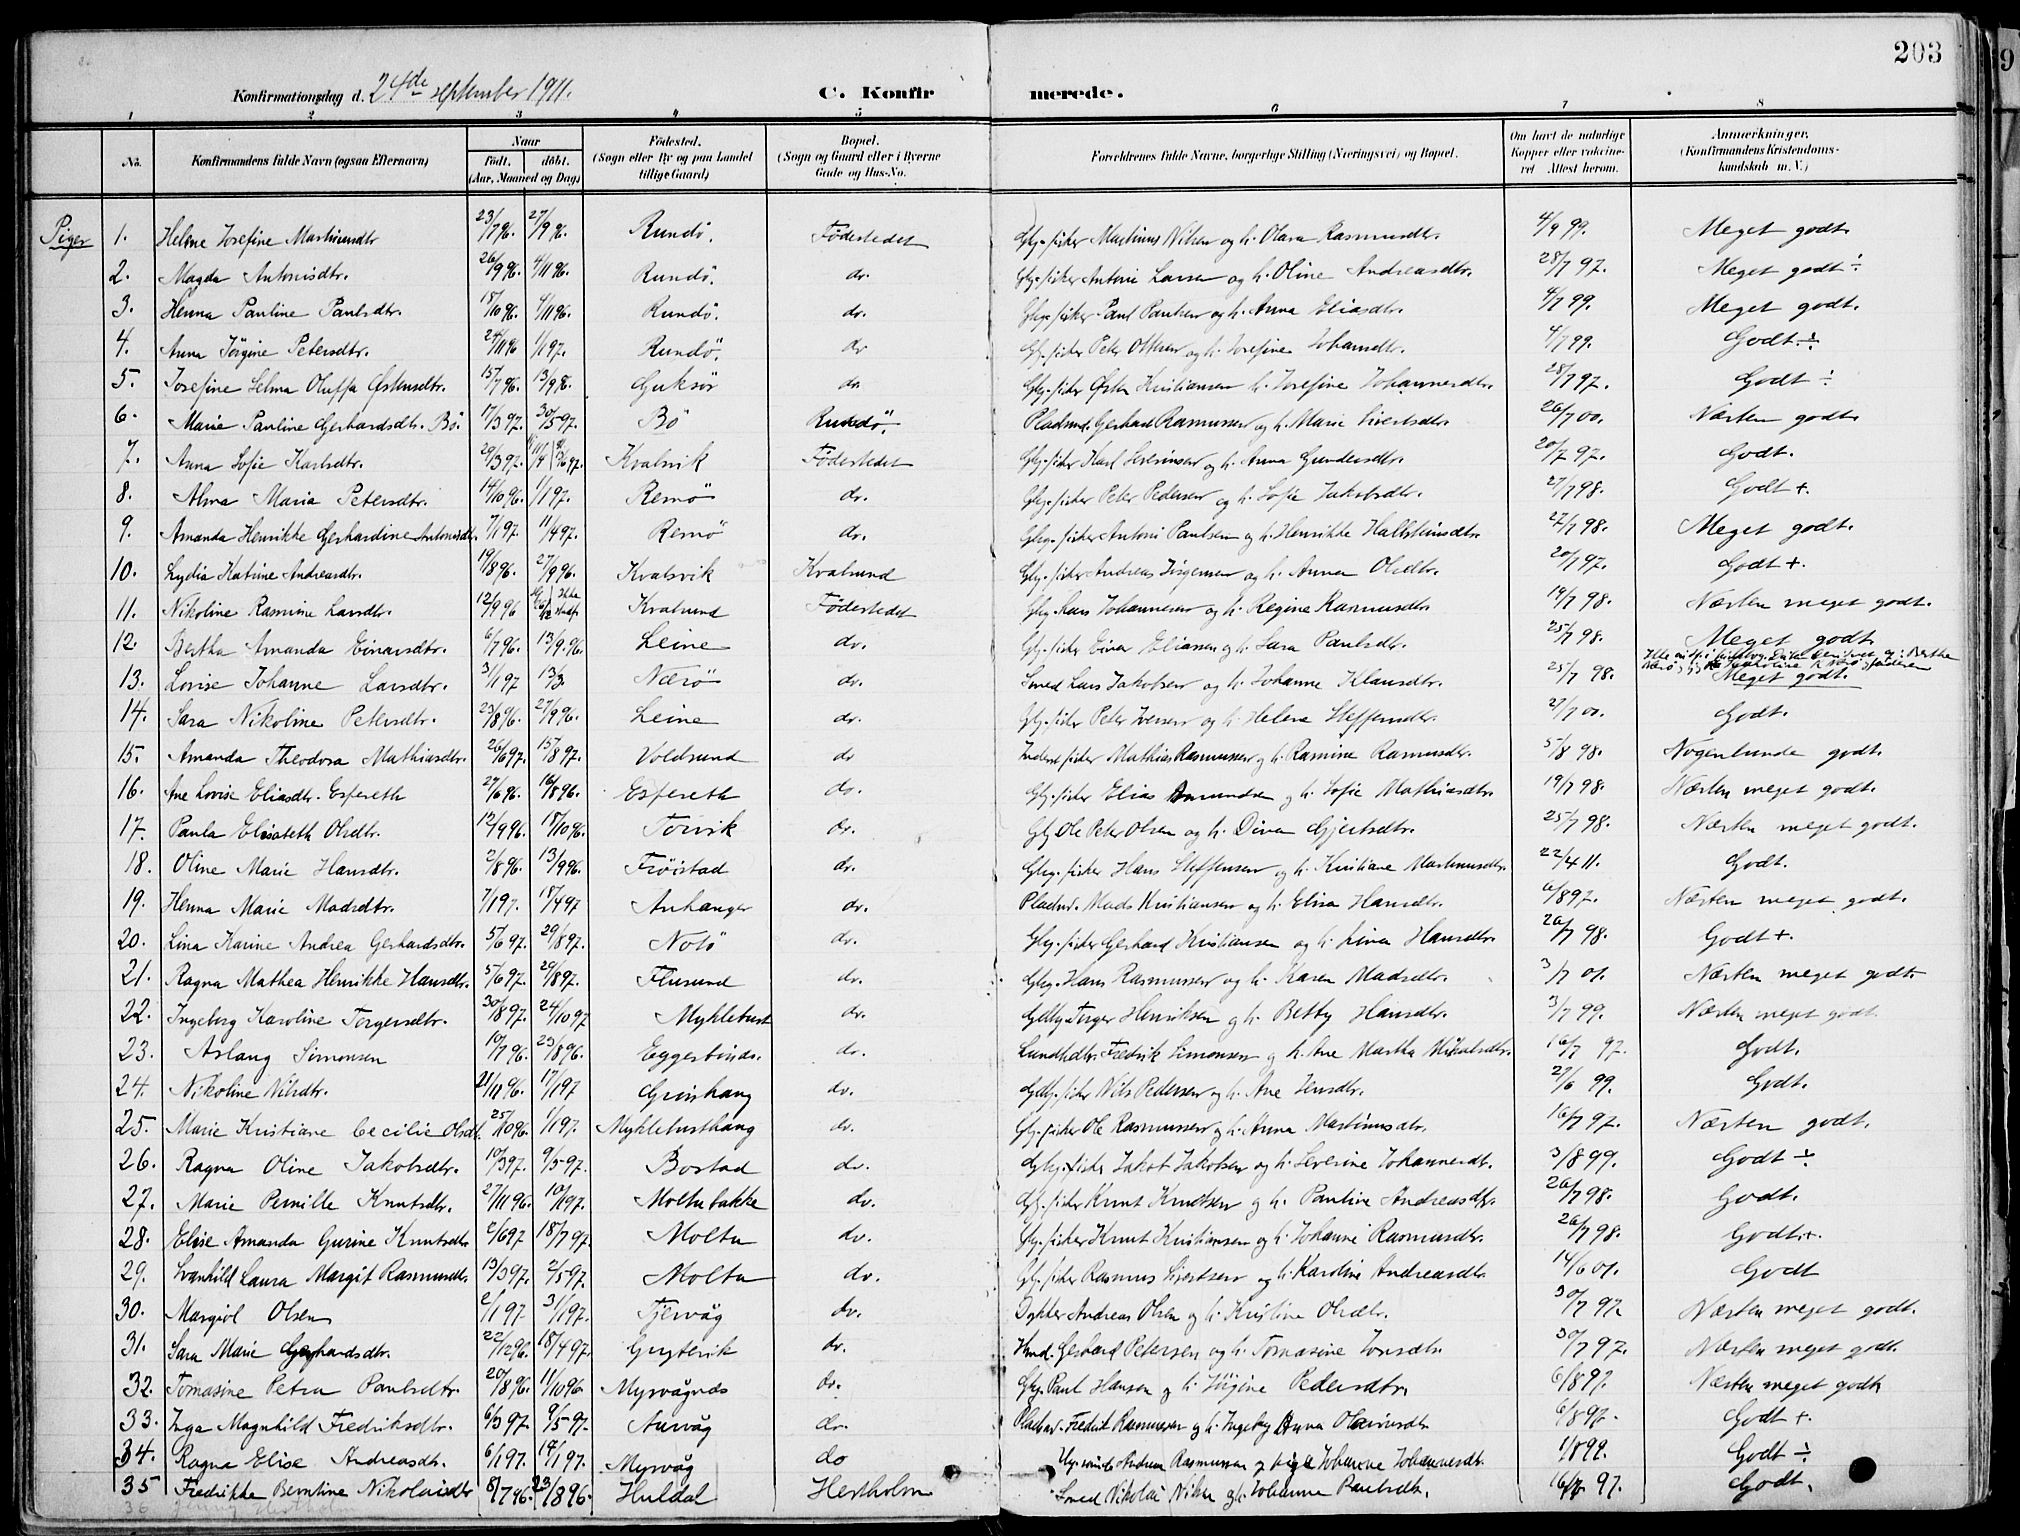 203
Konfirmationsdag d. 24de september 1911.
C. Konfirmerede.
1 2 3 4 5 6 7 8
No. Konfirmandens fulde Navn (ogsaa Efternavn) Naar født, døbt. (Aar, Maaned og Dag) Fødested. (Sogn eller By og paa Landet tillige Gaard) Bopæl. (Sogn og Gaard eller i Byerne Gade og Hus-No. Forældrenes fulde Navne, borgerlige Stilling (Næringsvei) og Bopæl. Om havt de naturlige Kopper eller vakcineret Attest herom. Anmærkninger. (Konfirmandens Kristendomskundskab m. V.)
Piger
1. Helene Josefine Martinusdtr 23/7 96. 27/9 96. Rundö. Fødestedet Gbr. fisker Martinus Nilsen og h. Olava Rasmusdtr. 4/9 99. Meget godt.
2. Magda Antonisdtr. 26/9 96. 4/11 96. Rundö. do. Antoni Larsen og h. Oline Andreasdtr. 28/7 97. Meget godt ÷
3. Henna Pauline Paulsdtr. 18/10 96. 4/11 96. Rundö. do. Paul Paulsen og h. Anna Eliasdtr. 4/7 99. Meget godt.
4. Anna Jörgine Petersdtr. 24/11 96 1/1 97. Rundö. do Peter Ottesen og h. Josefine Johansdtr. 4/7 99. Godt ÷
5. Josefine Selma Oluffa Østensdtr. 15/7 96. 13/9 96. Goksör do. Østen Kristiansen h. Josefine Johannesdtr. 28/7 97. Godt ÷
6. Marie Pauline Gerhardsdtr. Bö. 17/3 97. 30/5 97. Bö Rundö. Pladsmd. Gerhard Rasmussen og h. Marie Sivertsdtr. 26/7 00. Næsten godt
7. Anna Sofie Karlsdtr. 29/3 97. Kvalsvik Fødestedet Karl Severinsen og h. Anna Gundersdtr. 20/7 97. Godt.
8. Alma Maria Petersdtr. 14/10 96. 1/1 97. Remö do. Peter Pedersen og h. Sofie Jakobsdtr. 27/7 98. Godt +.
9. Amanda Henrikke Gerhardine Antonisdtr. 7/1 97. 11/4 97. Remö do. Antoni Paulsen og h. Henrikke Hallsteinsdtr. 27/7 98. Meget godt.
10. Lydia Katrine Andreasdtr. 19/8 96. 27/9 96. Kvalsvik Kvalsund Andreas Jörgensen og h. Anna Olsdtr. 20/7 97. Godt +.
11. Nikoline Rasmine Larsdtr. 12/9 96 Kvalsund Fødestedet Lars Johannesen og h. Regine Rasmusdtr. 19/7 98. Næsten meget godt.
12. Bertha Amanda Einarsdtr. 6/7 96. 13/9 96. Leine do. Einar Eliassen og h. Sara Paulsdtr. 25/7 98. Meget godt
13. Lovise Johanne Larsdtr. 3/1 97 13/3. Nærö do. Smed Lars Jakobsen og h. Johanne Klausdtr. 25/7 98. Meget godt.
14. Sara Nikoline Petersdtr. 23/8 96. 27/9 96. Leine do. Peter Iversen og h. Helene Steffensdtr. 27/7 00. Godt.
15. Amanda Theodora Mathiasdtr. 26/6 97. 15/8 97. Voldsund do Inderst fisker Mathias Rasmussen og h. Rasmine Rasmusdtr. 5/8 98. Nogenlunde godt.
16. Ane Lovise Eliasdtr. Espeseth 27/6 96. 16/8 96. Espeseth do. Elias Amundsen og h. Sofie Mathiasdtr. 19/7 98. Næsten meget godt.
17. Paula Elisabeth Olsdtr. 12/9 96. 18/10 96. Torvik do. Ole Peter Olsen og h. Dina Gjertsdtr. 25/7 98. Næsten meget godt.
18. Oline Marie Hansdtr. 2/8 96. 13/9 96. Fröistad do. Hans Steffensen og h. Kristiane Martinusdtr. 22/4 11. Godt.
19. Henna Marie Madsdtr. 7/1 97. 18/4 97 Anhanger do. Mads Kristiansen og h. Elisa Hansdtr. 6/8 97. Næsten meget godt.
20. Lina Karine Andrea Gerhardsdtr. 5/6 97. 29/8 97. Notö do. Gerhard Kristiansen og h. Lina Hansdtr. 26/7 98. Godt +.
21. Ragna Mathea Henrikke Hansdtr. 5/6 97. 29/8 97. Flusund do. Hans Rasmussen og h. Karen Madsdtr. 3/7 01. Næsten meget godt.
22. Ingeborg Karoline Torgersdtr. 30/8 97. 24/10 97 Myklebust do. Torger Henriksen og h. Betty Hansdtr. 3/7 99. Næsten meget godt.
23. Aslaug Simonsen 10/7 96. 23/8 96. Eggesbönds. do. Fredrik Simonsen og h. Ane Martha Nikolaisdtr. 16/7 97. Godt.
24. Nikoline Nilsdtr. 21/11 96. 17/1 97 Grinshaug do. Nils Pedersen og h. Ane Jensdtr. 27/6 99. Godt.
25. Marie Kristiane Cecilie Olsdtr. 25/10 96. 1/1 97. Myklebusthaug do. Ole Rasmussen og h. Anna Martinusdtr. 16/7 97. Næsten godt.
26. Ragna Oline Jakobsdtr. 10/3 97. 9/5 97. Bostad do. Jakob Jakobsen og h. Severine Johannesdtr. 3/8 99. Godt ÷
27. Marie Pernille Knutsdtr. 27/11 96. 10/1 97. Moltubakke do. Knut Knutsen og h. Pauline Andreasdtr. 26/7 98. Godt.
28. Elise Amanda Gurine Knutsdtr 2/6 97 18/7 97. Moltu do. Knut Kristiansen og h. Johanne Rasmusdtr. 26/7 98. Godt +.
29. Svanhild Laura Margit Rasmusdtr. 13/3 97. 2/5 97. Moltu do. Rasmus Sivertsen og h. Karoline Andreasdtr. 14/6 01. Godt
30. Margido Olsen 2/1 97. 31/1 97. Tjervåg do. Andreas Olsen og h. Kristine Olsdtr. 30/7 97. Næsten meget godt.
31. Sara Marie Gerhardsdtr. 22/12 96. 18/4 97. Gurtevik do. Gerhard Petersen og h. Tomasine Jonsdtr. 30/7 97. Næsten meget godt.
32. Tomasine Petra Paulsdtr. 20/8 96. 11/10 96 Myrvågnds do. Paul Hansen og h. Jörgine Pedersdtr. 6/8 97. Næsten meget godt
33. Inga Magnhild Fredriksdtr. 6/3 97. 9/5 97. Aurvåg do. Fredrik Rasmussen og h. Ingeborg Anna Olausdtr. 6/8 97. Godt +.
34. Ragna Elise Andreasdtr. 6/1 97. 14/1 97. Myrvåg do Andreas Rasmussen og Johanne Johannesdtr. 1/8 99. Godt ÷
35 Fredrikke Berntine Nikolaisdtr 8/7 96. 23/8 96. Huldal Hestholm Smed Nikolai Nilsen og h. Johanna Paulsdtr. 16/7 97. Godt.
36